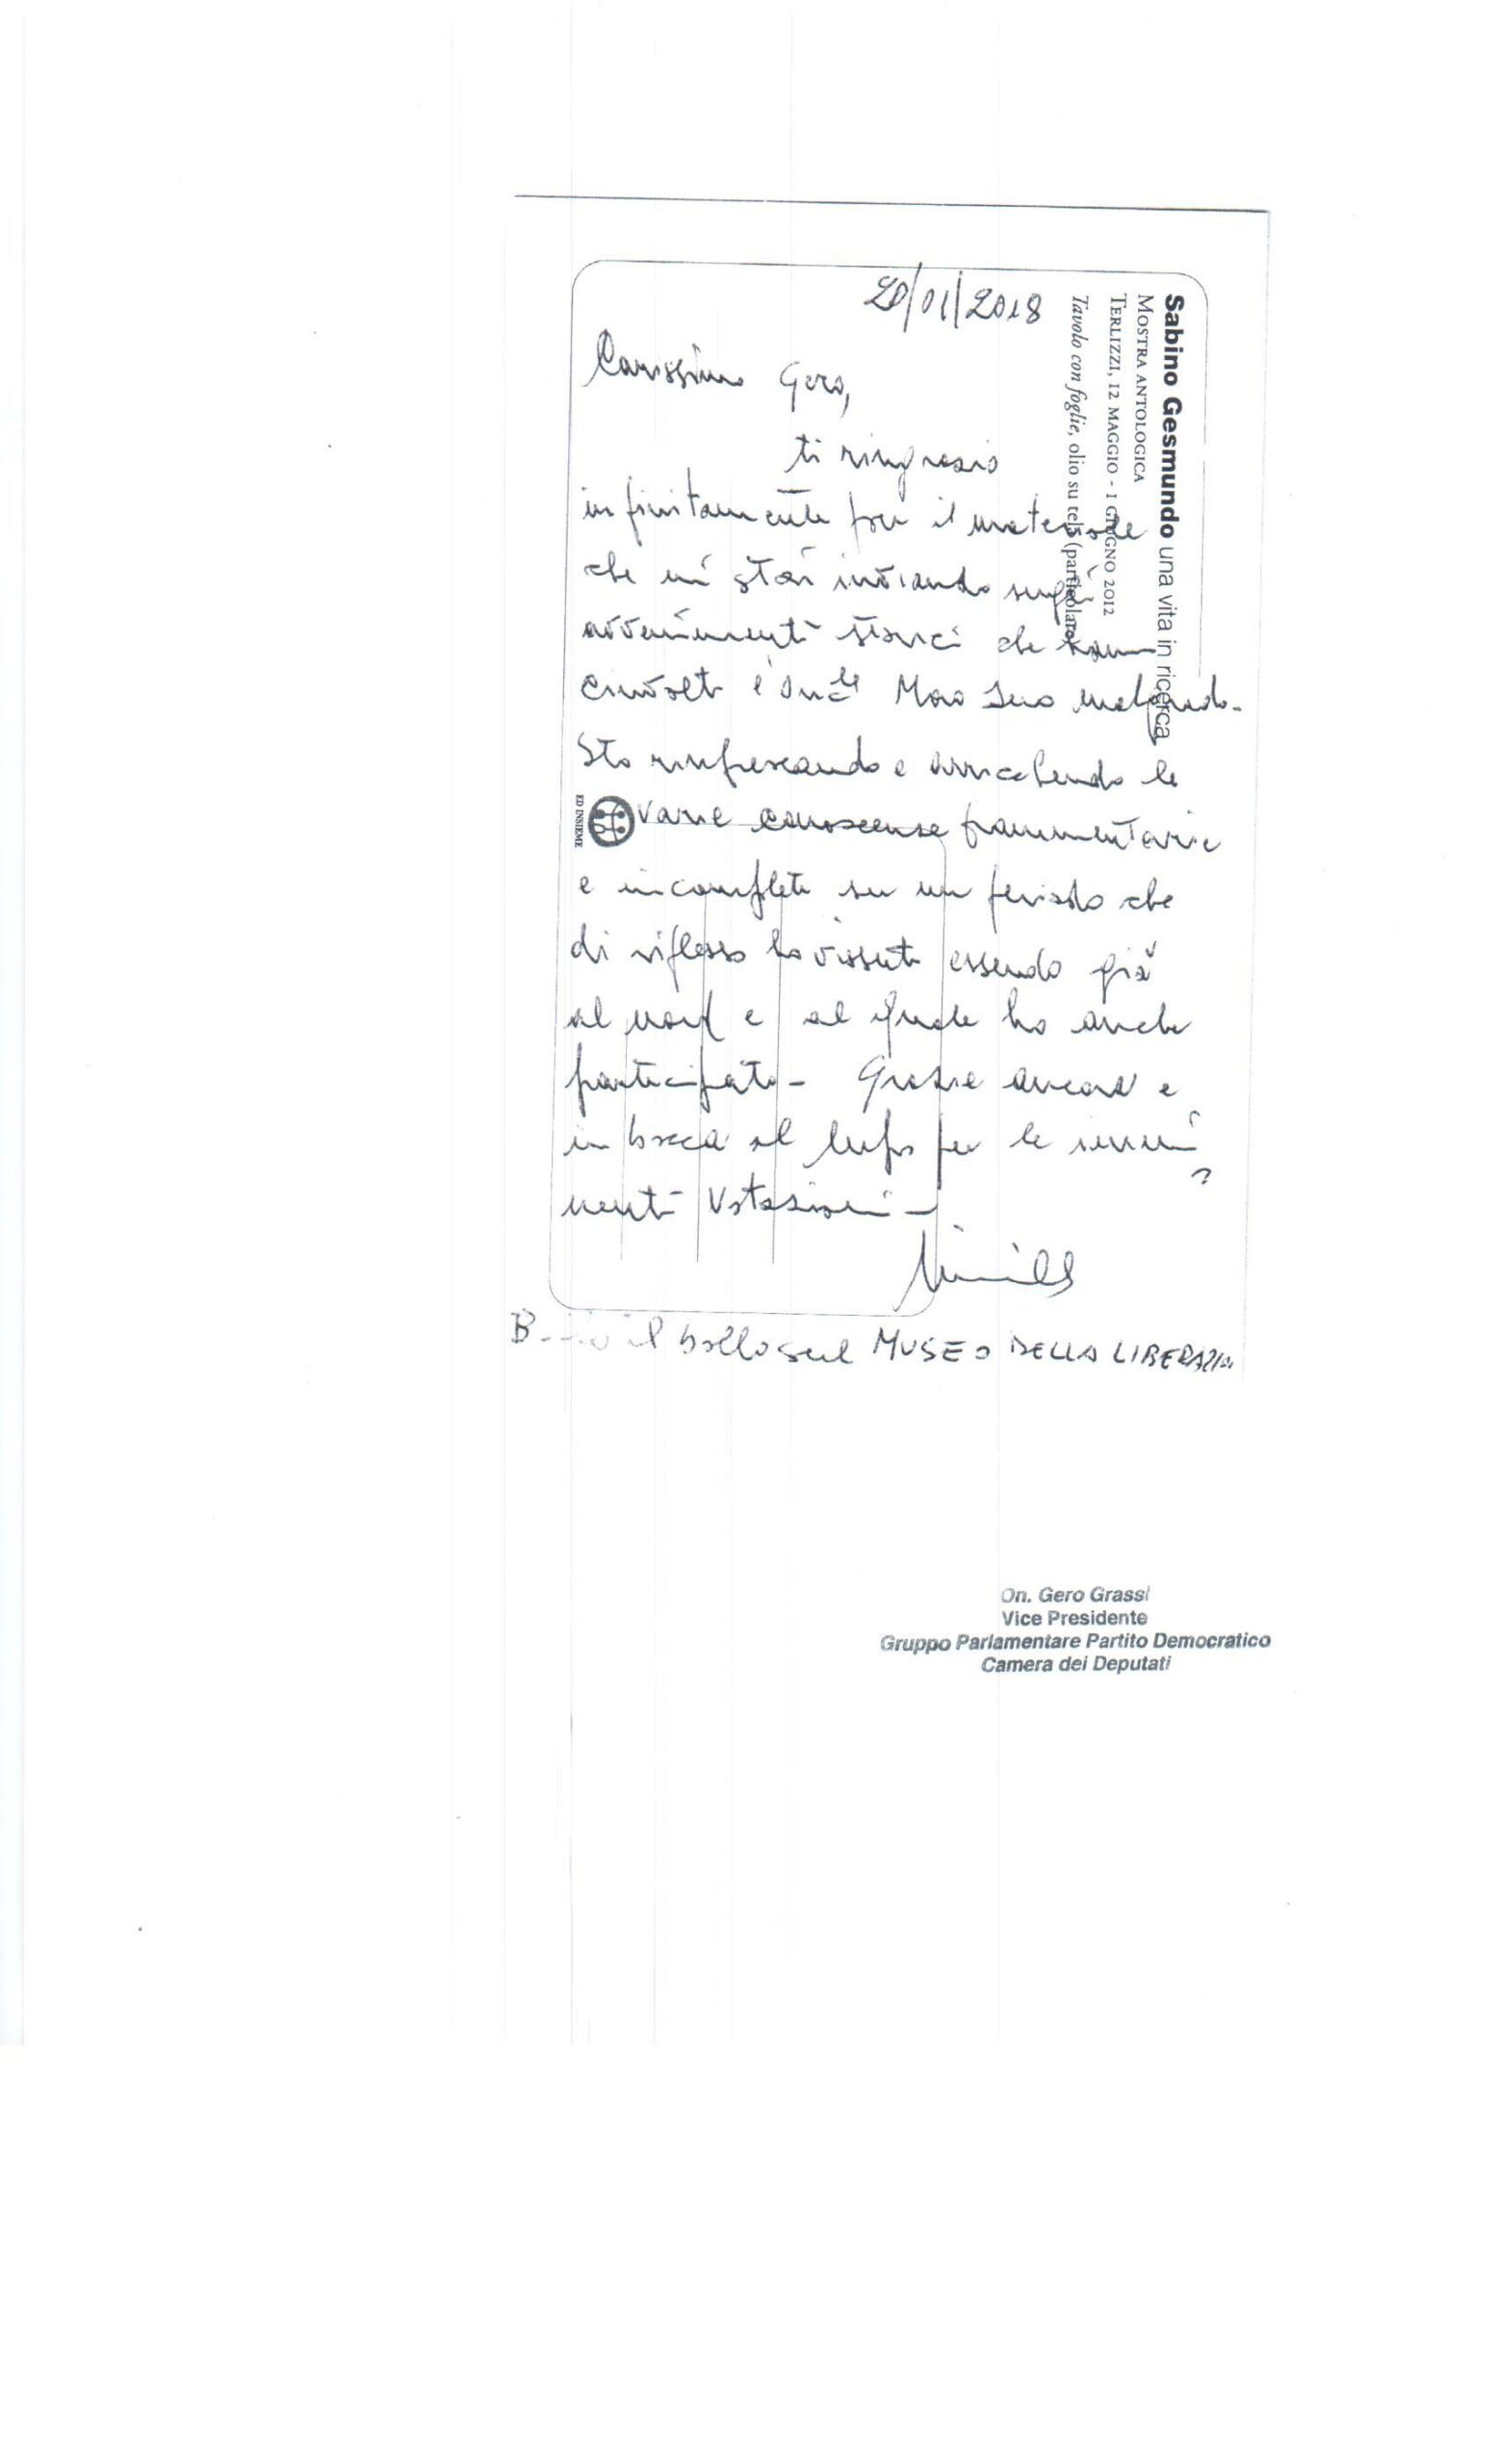 20/01/2018
Carissimo Gero,
ti ringrazio
infinitamente per il materiale
che mi stai inviando sugli
avvenimenti storici che hanno
coinvolto Moro suo malgrado.
Sto rinfrescando e arricchendo le
varie conoscenze frammentarie
e incomplete su un periodo che
di riflesso ho vissuto essendo già
al nord e al quale ho anche
participato - Grazie ancora e
in bocca al lupo per le immi
nenti Votazioni -
il bollo sul MUSEO DELLA LIBERAZIO
Sabino Gesmundo una vita in ricerca
MOSTRA ANTOLOGICA
TERLIZZI, 12 MAGGIO - 1 GIUGNO 2012
Tavolo con foglie, olio su tela (particolare)
ED INSIEME
On. Gero Grassi
Vice Presidente
Gruppo Parlamentare Partito Democratico
Camera dei Deputati